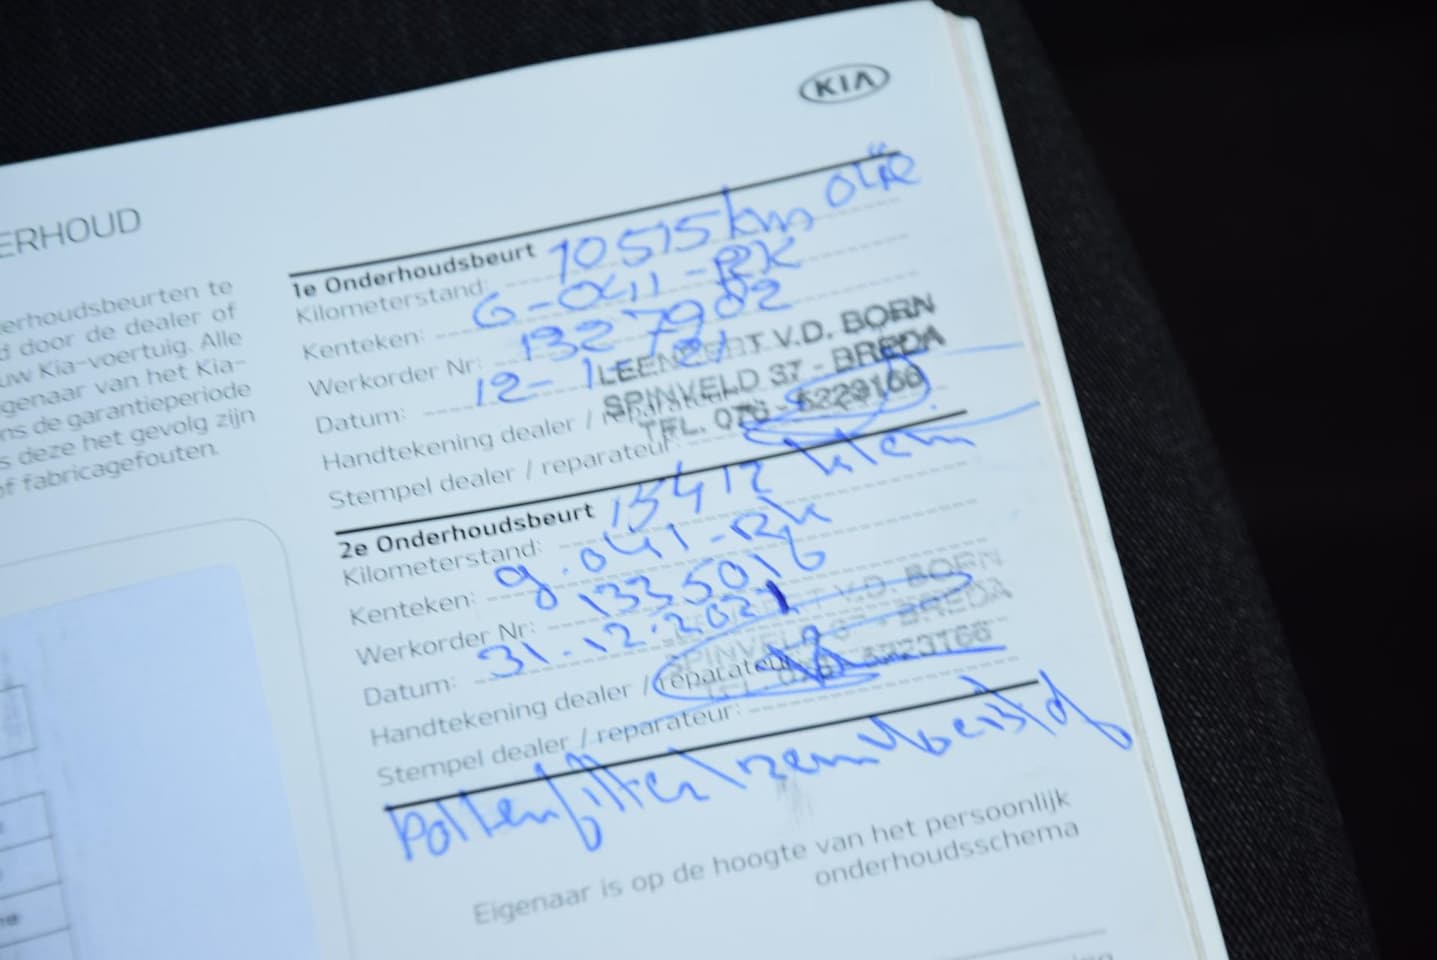 KIA
ERHOUD
erhoudsbeurten te
d door de dealer of
uw Kia-voertuig. Alle
genaar van het Kia-
ns de garantieperiode
s deze het gevolg zijn
of fabricagefouten.
1e Onderhoudsbeurt
Kilometerstand: 10515 km olie
Kenteken: G-041-RK
Werkorder Nr: 1327902
Datum: 12-1-21
Handtekening dealer / reparateur:
Stempel dealer / reparateur:
LEENDERT V.D. BORN
SPINVELD 37 - BREDA
TEL. 076 - 5223166
2e Onderhoudsbeurt
Kilometerstand: 13412 klein
Kenteken: g-041-Rk
Werkorder Nr: 1335016
Datum: 31-12-2021
Handtekening dealer / reparateur:
Stempel dealer / reparateur:
V.D. BORN
SPINVELD 37 - BREDA
5223166
Pollenfilter
Eigenaar is op de hoogte van het persoonlijk
onderhoudsschema